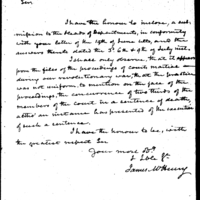 Sir
I have the honour to inclose, a sub-
mission to the Heads of Departments, in conformity
with your letter of the of June last, and their
answers thereto dated the 3d & 4th of July inst.
I shall only observe, that it appears
from the files of the proceedings of courts martial
during our revolutionary war, that the practice
was not uniform, to mention on the face of the
proceedings, the concurrence of two thirds of the
members of the court in a sentence of death,
after an instance has presented of the execution
of such a sentence.
I have the honour to be, with
the greatest respect Sir
Your most Obt
James McHenry